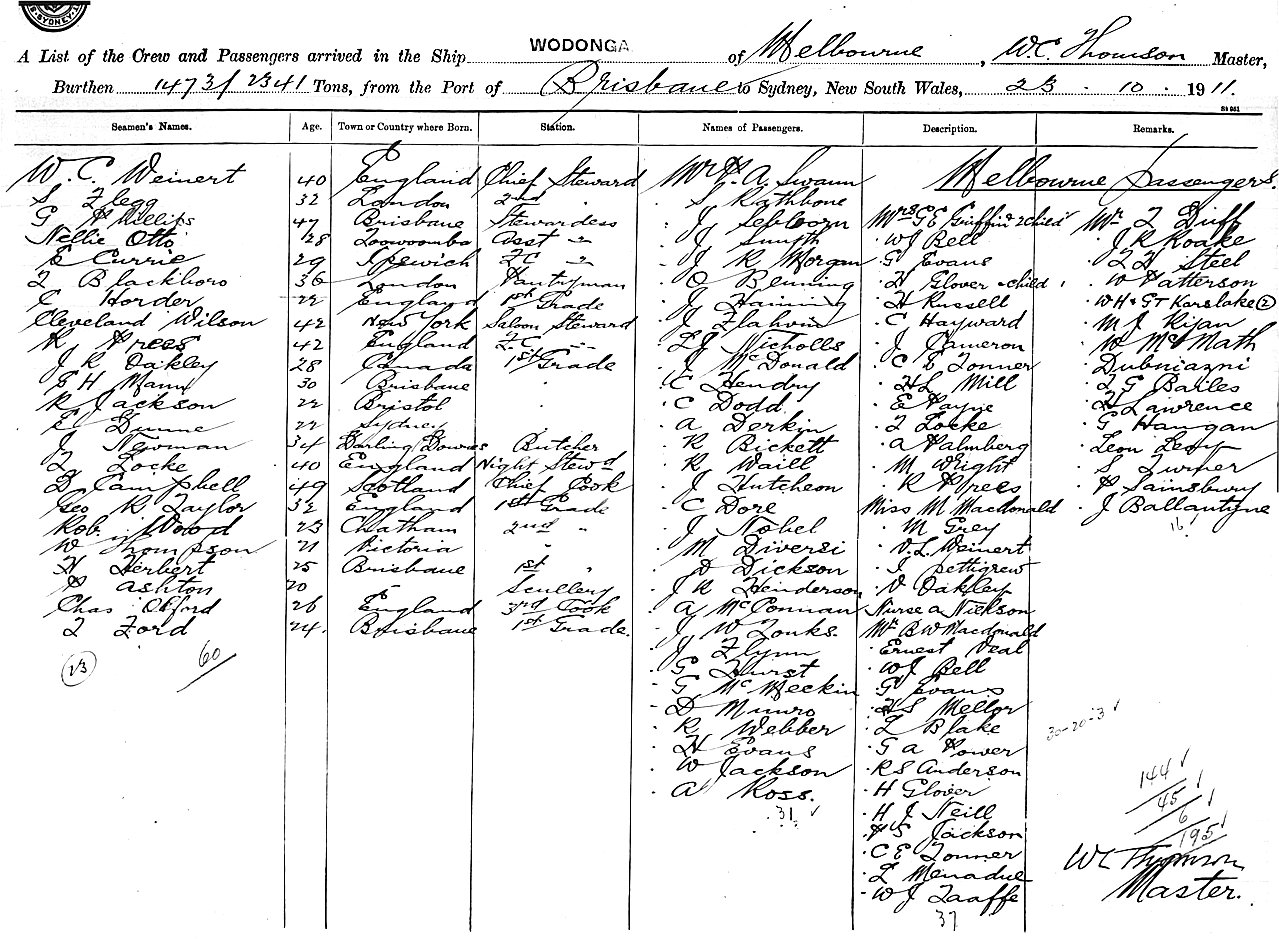 SYDNEY
WODONGA
A List of the Crew and Passengers arrived in the Ship WODONGA of Melbourne, W.C. Thomson Master,
Burthen 1473/2341 Tons, from the Port of Brisbane to Sydney, New South Wales, 23 . 10 . 1911.
Seamen's Names. Age. Town or Country where Born. Station. Names of Passengers. Description. Remarks.
W. C. Weinert 40 England Chief Steward Mr A. Swann Melbourne passengers.
S Flegg 32 London 2nd " S Rathbone
G Phillips 47 Brisbane Stewardess J Mrs G E Griffin & child Mr T Duff
Nellie Otto 28 Toowoomba Asst " J Smyth W J Bell J R Roake
E Currie 29 Ipswich F.C " J R Morgan G Evans Steel
T Blackboro 36 London Pantryman O Benning H Glover & child W Patterson
C Horder 22 England 1st Grade J Haining H Russell W H & G T Karslake (2)
Cleveland Wilson 42 New York Saloon Steward J Flahvin C Hayward M J Kijan
R Prees 42 England F.C " Nicholls J Cameron W McMath
J R Oakley 28 Canada 1st Grade J McDonald C E Tonner Dubniazni
G H Mann 30 Brisbane C Hendry H L Mill T G Bailes
R Jackson 22 Bristol C Dodd E Payne H Lawrence
E Dunne 22 Sydney A Derkin T Locke G Haugan
J Newman 34 Darling Downs Butcher R Bickett A Palmberg Leon Levy
T Locke 40 England Night Stewd R Waill M Wright S Turner
D Campbell 49 Scotland Chief Cook J Hutcheon R Prees P Sainsbury
Geo R Taylor 32 England 1st Grade C Dore Miss M Macdonald J Ballantyne
Rob. Wood 23 Chatham 2nd " J Nobel M Grey 16
W Thompson 21 Victoria " M Diversi V. L. Weinert
H Herbert 25 Brisbane 1st " D Dickson J Pettigrew
P Ashton 20 Scullery J R Henderson V Oakley
Chas Oxford 26 England 3rd Cook A McConnan Nurse A Nickson
T Ford 24. Brisbane 1st Grade. J W Tonks. Mr B W Macdonald
(23) 60 J Flynn Ernest Veal
G Hurst W J Bell
G McMeckin G Evans
D Munro H S Mellor
R Webber L Blake 30-20-3
H Evans G A Power
W Jackson R S Anderson 144
A Ross. H Glover 45
31 H J Neill 6
P S Jackson 195
C E Tonner W C Thomson
L Menadue Master.
W J Taaffe
37